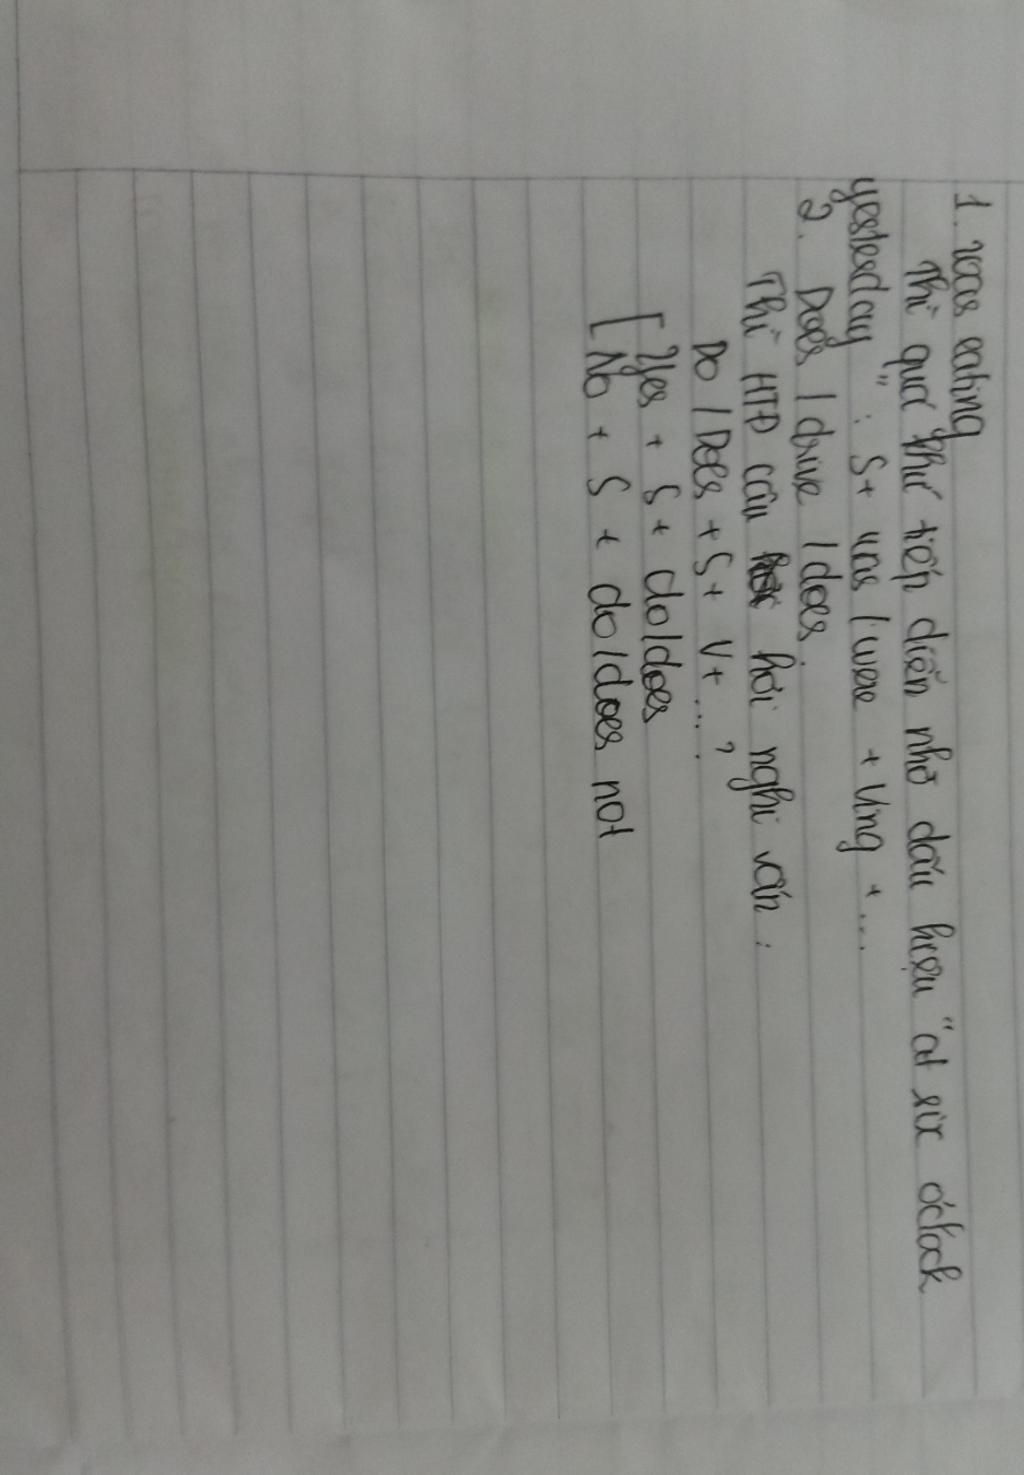 1. was eating
Thì quá khứ tiếp diễn nhờ dấu hiệu "at six o'clock
yesterday" : S + was / were + Ving + ...
2. Does / drive / does.
Thì HTĐ câu hỏi nghi vấn :
Do / Does + S + V + ... ?
[ Yes + S + do / does
[ No + S + do / does not